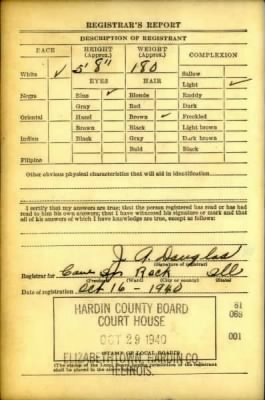 REGISTRAR'S REPORT
DESCRIPTION OF REGISTRANT
RACE HEIGHT (Approx.) WEIGHT (Approx.) COMPLEXION
White ✓ 5' 8" 180 Sallow
EYES HAIR Light ✓
Negro Blue ✓ Blonde Ruddy
Gray Red Dark
Oriental Hazel Brown ✓ Freckled
Brown Black Light brown
Indian Black Gray Dark brown
Bald Black
Filipino
Other obvious physical characteristics that will aid in identification
I certify that my answers are true; that the person registered has read or has had
read to him his own answers; that I have witnessed his signature or mark and that
all of his answers of which I have knowledge are true, except as follows:
J. A. Douglas
(Signature of registrar)
Registrar for Cave In Rock Ill
(Precinct) (Ward) (City or county) (State)
Date of registration Oct 16 - 1940
HARDIN COUNTY BOARD 61
COURT HOUSE 068
OCT 29 1940 001
ELIZABETHTOWN, HARDIN CO.
(STAMP OF LOCAL BOARD)
ILLINOIS.
(The stamp of the Local Board of the registrant
shall be placed in the above space.)